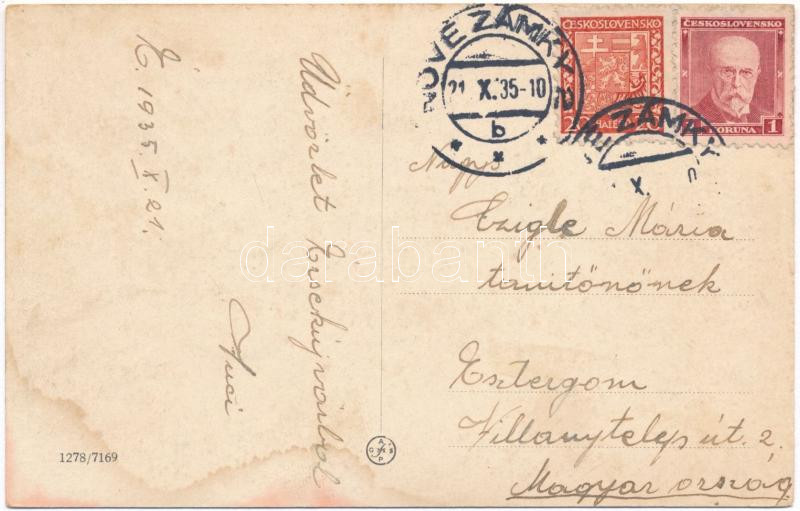 É. 1935. X. 21.
Üdvözlet Érsekújvárból
Muci
1278/7169
NOVÉ ZÁMKY 2
21. X. 35-10
b
ČESKOSLOVENSKO
20 HALÉŘ 20
ČESKOSLOVENSKO
KORUNA 1
ZÁMKY
X.
Nagys
Czigle Mária
tanitónőnek
Esztergom
Villanytelep út. 2.
Magyar ország
darabanth